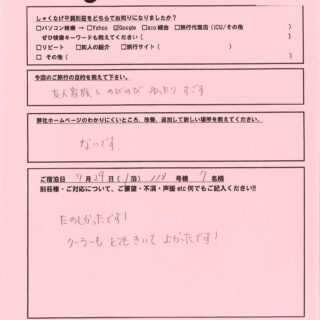 しゃくなげ平貸別荘をどちらでお知りになりましたか?
□パソコン検索 → □Yahoo ☑Google □aco経由 □旅行代理店(ICU/その他
ぜひ検索キーワードも教えてください( )
□リピート □知人の紹介 □旅行サイト( )
□その他( )
今回のご旅行の目的を教えて下さい。
友人家族と のびのび ゆったり すごす
弊社ホームページのわかりにくいところ、改善、追加して欲しい場所を教えてください。
ないです
ご宿泊日 7月29日(1泊) 113 号棟 7 名様
別荘棟・ご対応について、ご要望・不満・声援 etc 何でもご記入ください!!
たのしかったです!
クーラーも とてもきいて よかったです!